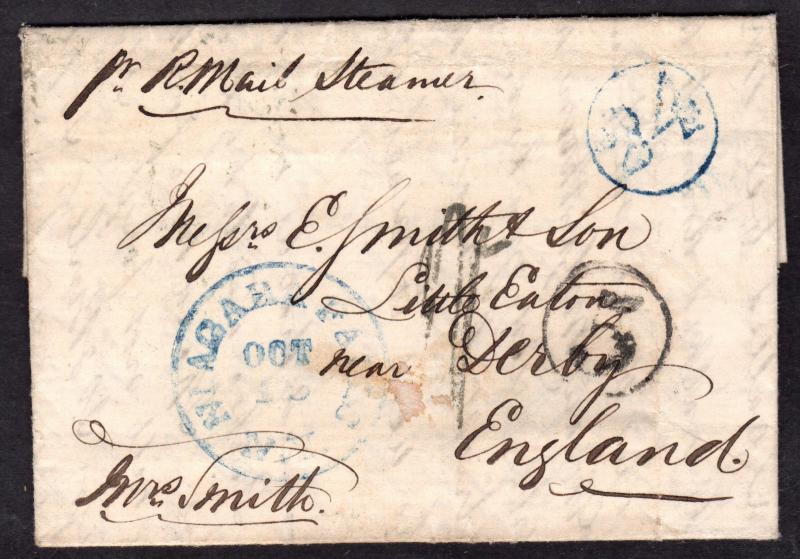 pr R. Mail Steamer.
Messrs E. Smith & Son
Little Eaton
near Derby
England.
Mrs Smith.
NIAGARA FALLS
OCT